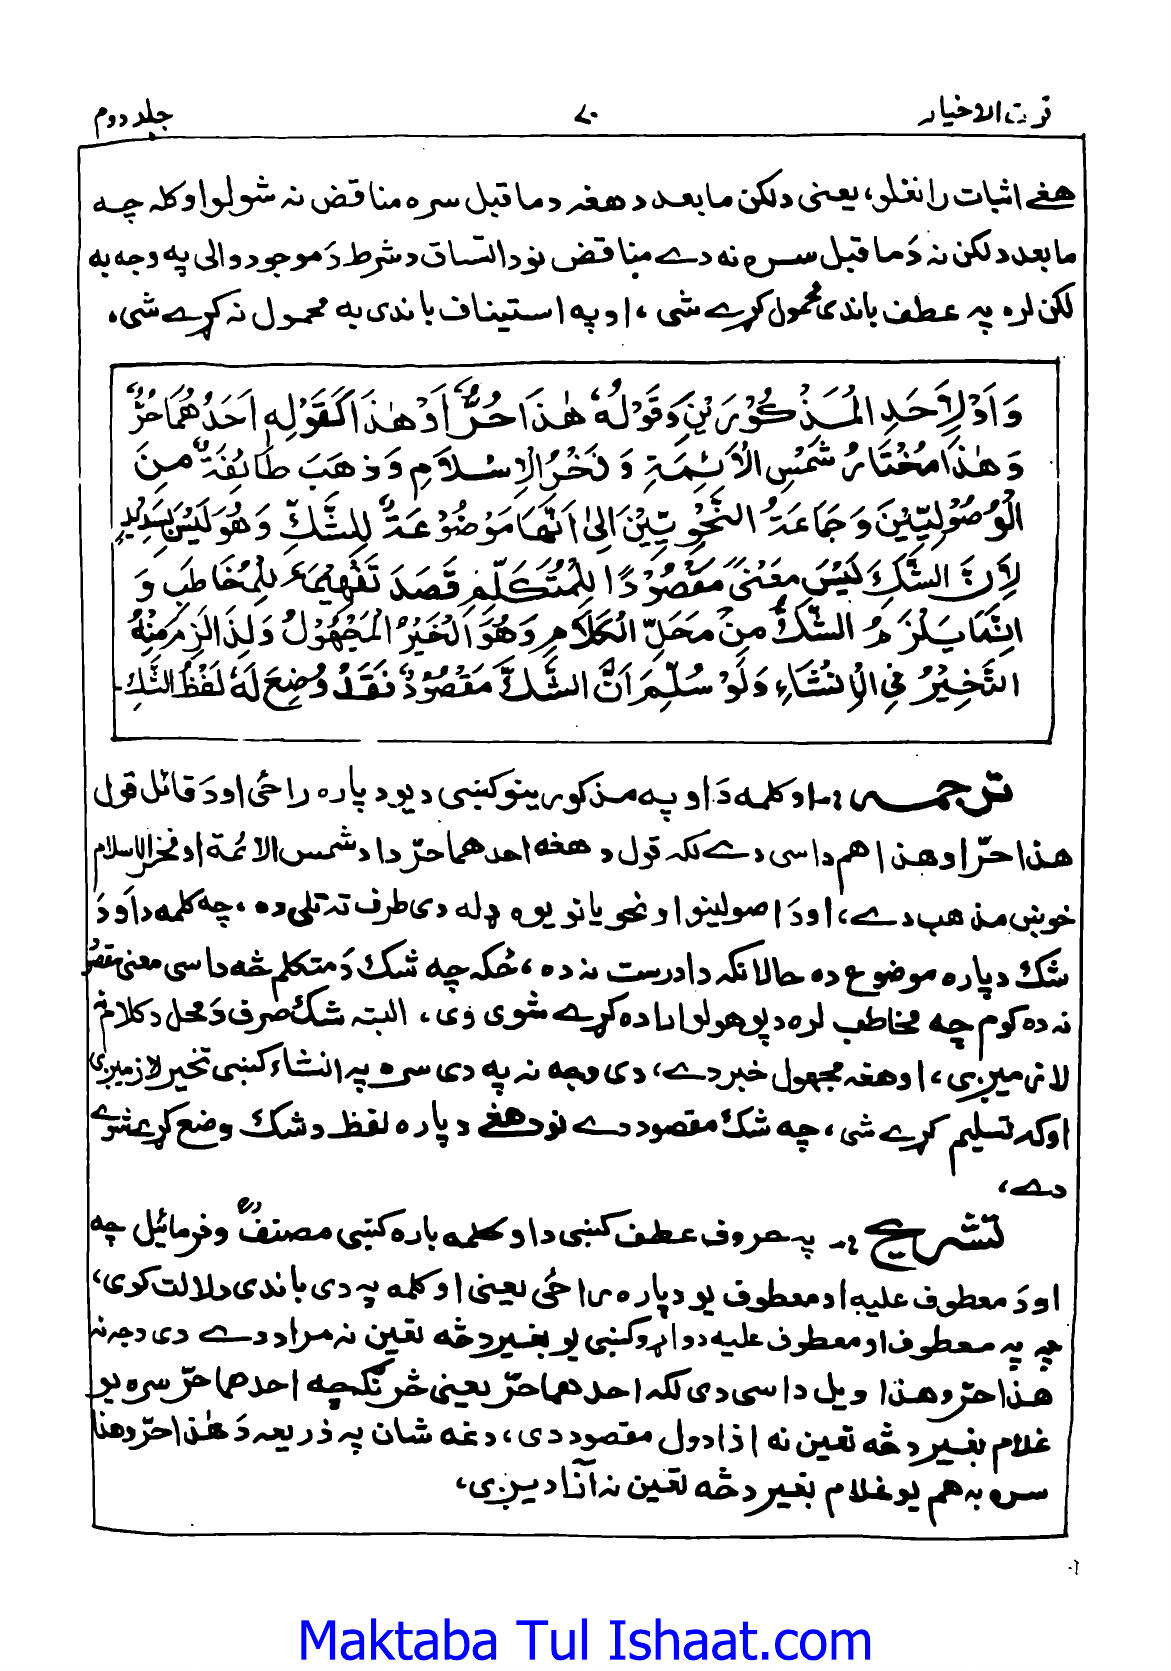 قرت الاخیار ۷۰ جلد دوم
هغے اثبات راتلو، یعنی دلکن مابعد د هغه د ماقبل سره مناقض نه شولو او کله چه
مابعد دلکن نه دَ ماقبل سره نه دے مناقض نو د اتساق د شرط دَ موجودوالی په وجه به
لکن لره په عطف باندی محمول کړے شی ، او په استیناف باندی به محمول نه کړے شی،
وَ اَوْ لِاَحَدِ الْمَذْكُوْرَيْنِ وَقَوْلُهٗ هٰذَا حُرٌّ اَوْ هٰذَا كَقَوْلِهٖ اَحَدُهُمَا حُرٌّ
وَ هٰذَا مُخْتَارُ شَمْسِ الْاَئِمَّةِ وَ فَخْرُ الْاِسْلَامِ وَ ذَهَبَ طَائِفَةٌ مِنَ
الْاُصُوْلِيِّيْنَ وَجَمَاعَةُ النَّحْوِيِّيْنَ اِلٰى اَنَّهَا مَوْضُوْعَةٌ لِلشَّكِّ وَهُوَ لَيْسَ بِسَدِيْدٍ
لِاَنَّ الشَّكَّ لَيْسَ مَعْنًى مَقْصُوْدًا لِلْمُتَكَلِّمِ قَصَدَ تَفْهِيْمَهٗ لِلْمُخَاطَبِ وَ
اِنَّمَا يَلْزَمُ الشَّكُّ مِنْ مَحَلِّ الْكَلَامِ وَهُوَ الْخَبَرُ الْمَجْهُوْلُ وَلِذَا لَزِمَ مِنْهُ
التَّخْيِيْرُ فِي الْاِنْشَاءِ وَلَوْ سُلِّمَ اَنَّ الشَّكَّ مَقْصُوْدٌ فَقَدْ وُضِعَ لَهٗ لَفْظُ الشَّكِّ
ترجمه :- او کلمه دَ او په مذکورینو کښی د یو د پاره راځی او دَ قائل قول
هذا حرّ او هذا هم داسی دے لکه قول د هغه احدهما حرّ دا د شمس الائمة او فخر الاسلام
خوښ مذهب دے، او دَ اصولینو او نحویانو یوه ډله دی طرف ته تلی ده ، چه کلمه دا او دَ
شک د پاره موضوع ده حالانکه دا درست نه ده ، ځکه چه شک دَ متکلم څه داسی معنی مقصود
نه ده کوم چه مخاطب لره د پوهولو اراده کړے شوی وی، البته شک صرف دَ محل د کلام نه
لازمیږی ، او هغه مجهول خبر دے، دی وجه نه په دی سره په انشاء کښی تخیر لازمیږی
او که تسلیم کړے شی ، چه شک مقصود دے نو د هغے د پاره لفظ د شک وضع کړے شوے
دے،
تشریح :- په حروف عطف کښی د او کلمه باره کښی مصنفؒ وفرمائیل چه
او دَ معطوف علیه او معطوف یو د پاره راځی یعنی او کلمه په دی باندی دلالت کوی،
چه په معطوف او معطوف علیه دواړو کښی یو بغیر د څه تعین نه مراد دے دی وجه نه
هذا حرّ و هذا ویل داسی دی لکه احدهما حرّ یعنی څرنګه چه احدهما حرّ سره یو
غلام بغیر د څه تعین نه ازادول مقصود دی، دغه شان په ذریعه دَ هٰذا حرّ و هذا
سره به هم یو غلام بغیر د څه تعین نه آزادیږی،
Maktaba Tul Ishaat.com